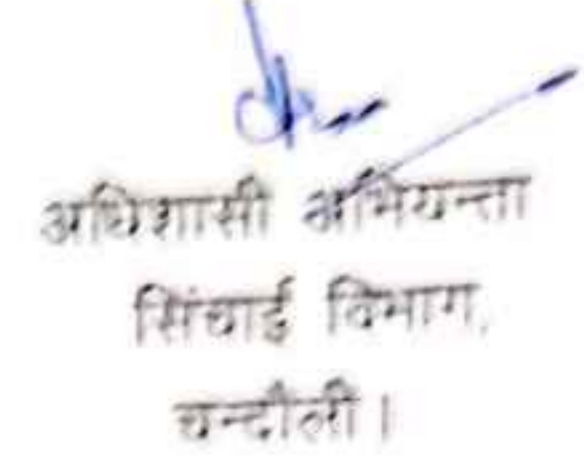 अधिशासी अभियन्ता
सिंचाई विभाग,
चन्दौली।